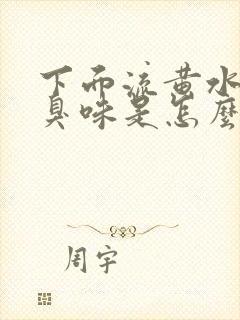 下而流黄水
臭味是怎麽
周宇